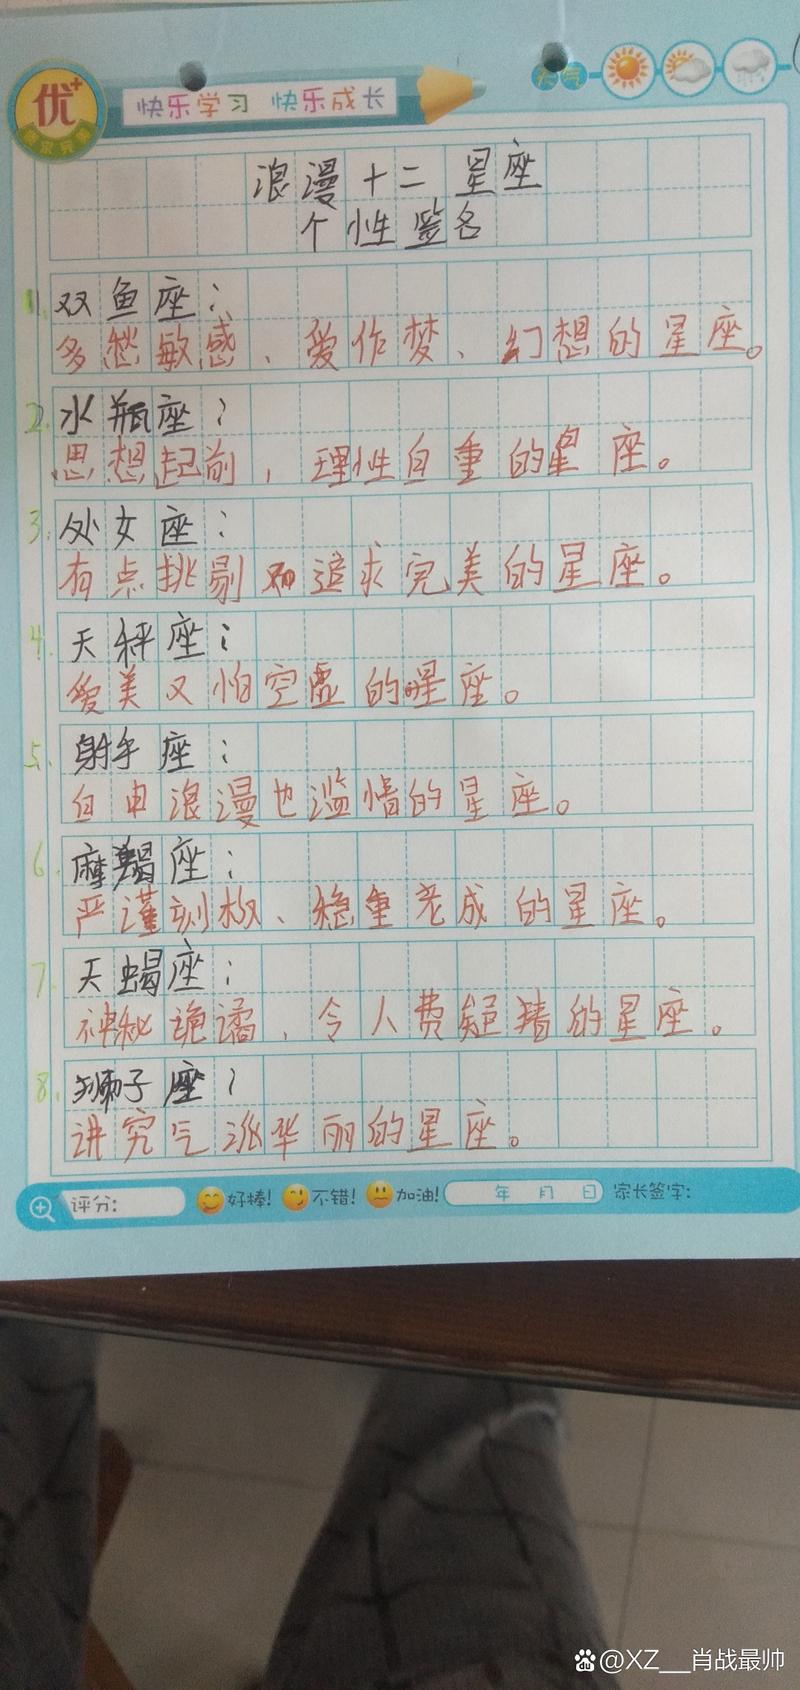 优+
快乐学习 快乐成长
天气
浪漫十二星座
个性签名
1.双鱼座:
多愁敏感、爱作梦、幻想的星座。
2.水瓶座:
思想起前,理性自重的星座。
3.处女座:
有点挑剔和追求完美的星座。
4.天秤座:
爱美又怕空虚的星座。
5.射手座:
自由浪漫也滥情的星座。
6.摩羯座:
严谨刻板、稳重老成的星座。
7.天蝎座:
神秘诡谲,令人费疑猜的星座。
8.狮子座:
讲究气派华丽的星座。
评分: 好棒! 不错! 加油! 年 月 日 家长签字:
@XZ__肖战最帅